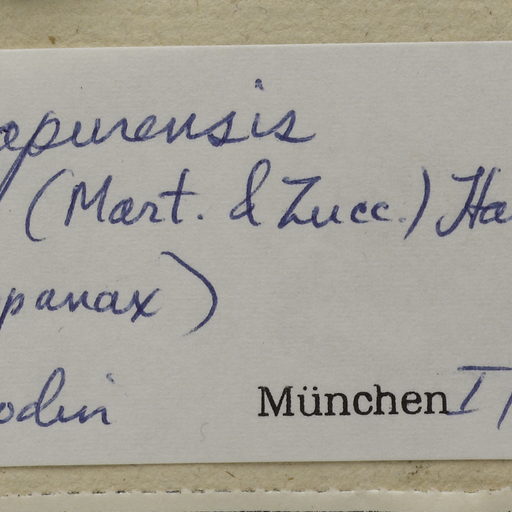 apurensis
(Mart. & Zucc.) Ha
panax)
odin München I